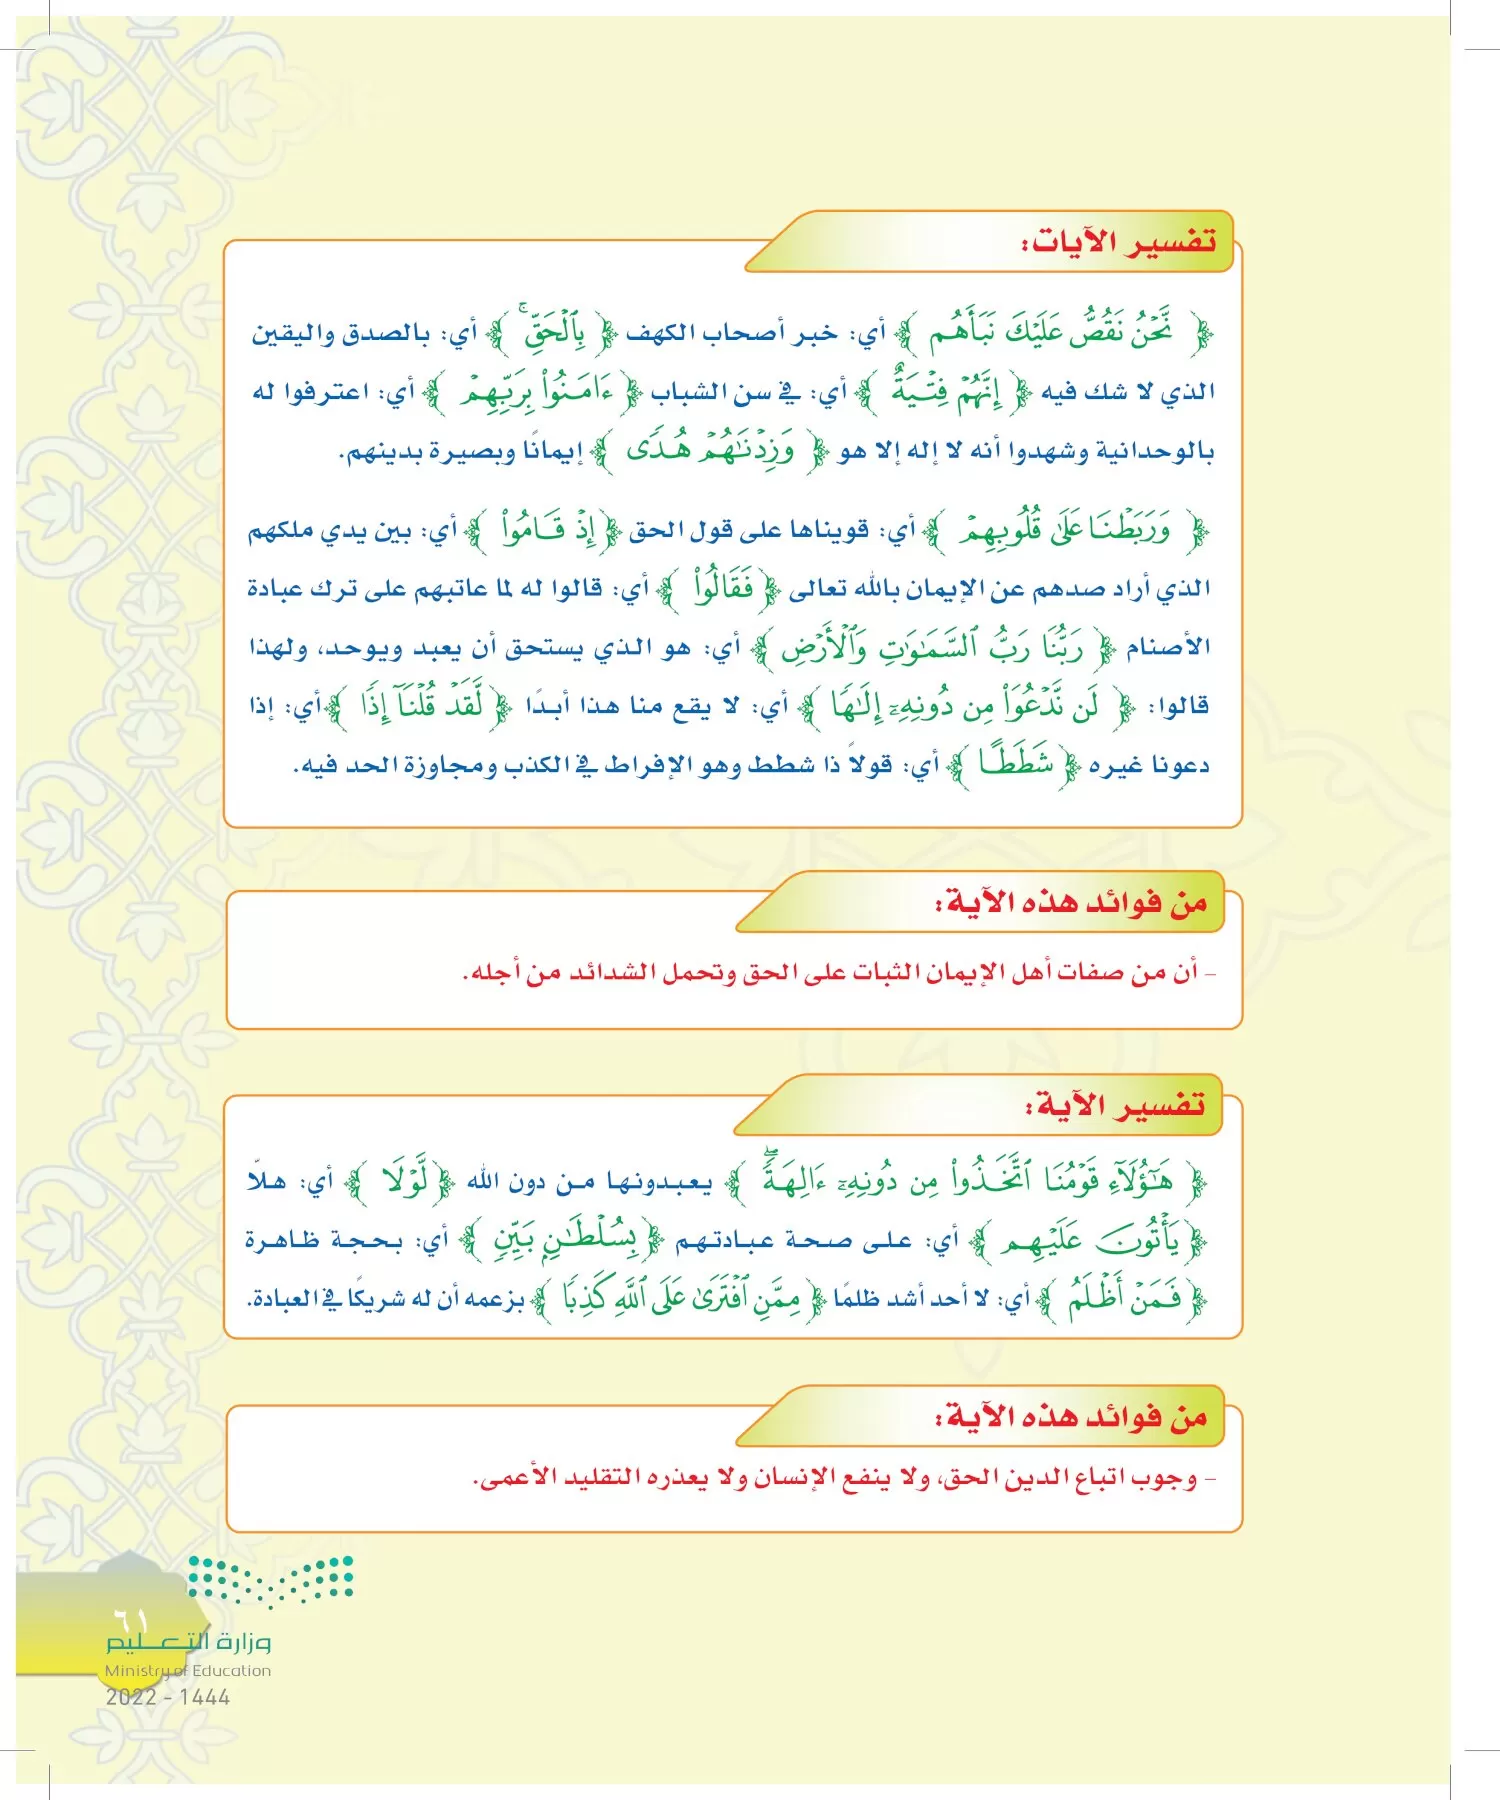 تفسير الآيات:
﴿ نَّحْنُ نَقُصُّ عَلَيْكَ نَبَأَهُم ﴾ أي: خبر أصحاب الكهف ﴿ بِٱلْحَقِّ ۚ ﴾ أي: بالصدق واليقين
الذي لا شك فيه ﴿ إِنَّهُمْ فِتْيَةٌ ﴾ أي: في سن الشباب ﴿ ءَامَنُوا۟ بِرَبِّهِمْ ﴾ أي: اعترفوا له
بالوحدانية وشهدوا أنه لا إله إلا هو ﴿ وَزِدْنَـٰهُمْ هُدًى ﴾ إيمانًا وبصيرة بدينهم.
﴿ وَرَبَطْنَا عَلَىٰ قُلُوبِهِمْ ﴾ أي: قويناها على قول الحق ﴿ إِذْ قَامُوا۟ ﴾ أي: بين يدي ملكهم
الذي أراد صدهم عن الإيمان بالله تعالى ﴿ فَقَالُوا۟ ﴾ أي: قالوا له لما عاتبهم على ترك عبادة
الأصنام ﴿ رَبُّنَا رَبُّ ٱلسَّمَـٰوَٰتِ وَٱلْأَرْضِ ﴾ أي: هو الذي يستحق أن يعبد ويوحد، ولهذا
قالوا: ﴿ لَن نَّدْعُوَا۟ مِن دُونِهِۦٓ إِلَـٰهًا ﴾ أي: لا يقع منا هذا أبدًا ﴿ لَّقَدْ قُلْنَآ إِذًا ﴾ أي: إذا
دعونا غيره ﴿ شَطَطًا ﴾ أي: قولاً ذا شطط وهو الإفراط في الكذب ومجاوزة الحد فيه.
من فوائد هذه الآية:
- أن من صفات أهل الإيمان الثبات على الحق وتحمل الشدائد من أجله.
تفسير الآية:
﴿ هَـٰٓؤُلَآءِ قَوْمُنَا ٱتَّخَذُوا۟ مِن دُونِهِۦٓ ءَالِهَةً ۖ ﴾ يعبدونها من دون الله ﴿ لَّوْلَا ﴾ أي: هلاّ
﴿ يَأْتُونَ عَلَيْهِم ﴾ أي: على صحة عبادتهم ﴿ بِسُلْطَـٰنٍۭ بَيِّنٍ ﴾ أي: بحجة ظاهرة
﴿ فَمَنْ أَظْلَمُ ﴾ أي: لا أحد أشد ظلمًا ﴿ مِمَّنِ ٱفْتَرَىٰ عَلَى ٱللَّهِ كَذِبًا ﴾ بزعمه أن له شريكًا في العبادة.
من فوائد هذه الآية:
- وجوب اتباع الدين الحق، ولا ينفع الإنسان ولا يعذره التقليد الأعمى.
٦١
وزارة التعليم
Ministry of Education
2022 - 1444